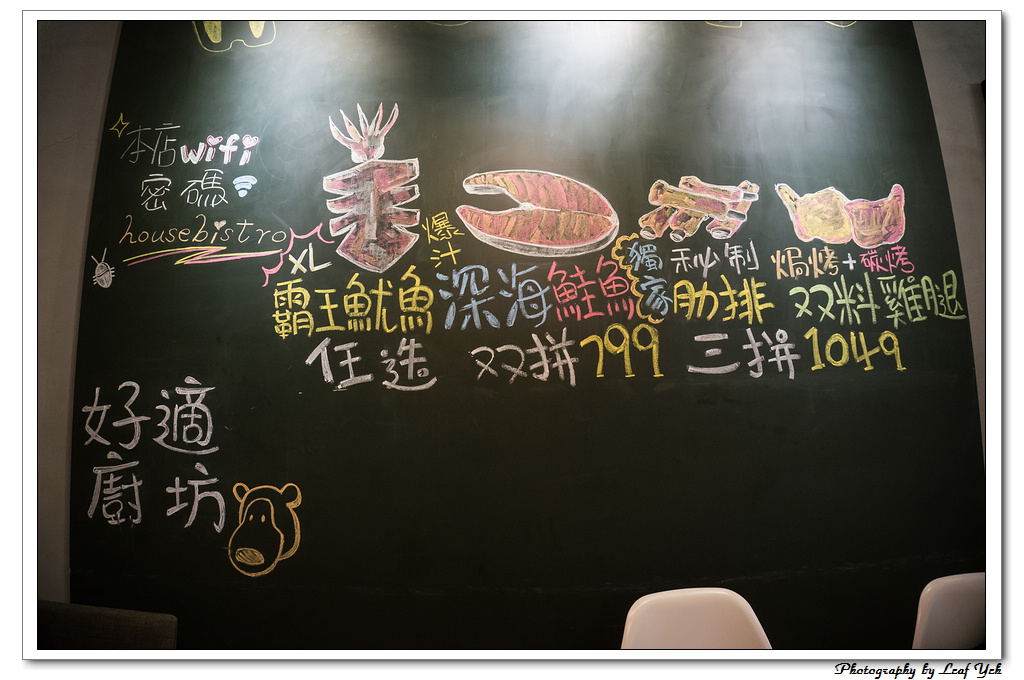 本店wifi
密碼
housebistro
XL
霸王魷魚
爆汁
深海鮭魚
獨家
秘制
肋排
焗烤+碳烤
双料雞腿
任选 双拼799 三拼1049
好適
廚坊
Photography by Leaf Yeh